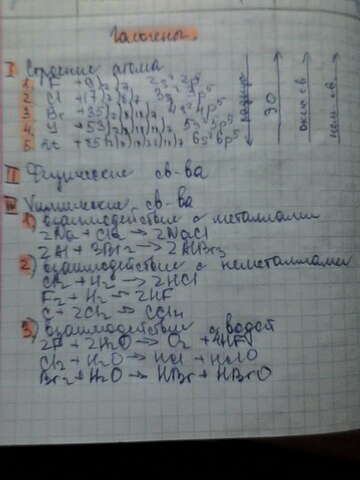 Галогены.
I Строение атома
1. F +9)2)7 2s² 2p⁵
2. Cl +17)2)8)7 3s² 3p⁵
3. Br +35)2)8)18)7 4s² 4p⁵
4. I +53)2)8)18)18)7 5s² 5p⁵
5. At +85)2)8)18)32)18)7 6s² 6p⁵
радиус
ЭО
окис. св.
нем. св.
II Физические св-ва
III Химические св-ва
1) взаимодействие с металлами
2Na + Cl₂ → 2NaCl
2Al + 3Br₂ → 2AlBr₃
2) взаимодействие с неметаллами
Cl₂ + H₂ → 2HCl
F₂ + H₂ → 2HF
C + 2Cl₂ → CCl₄
3) взаимодействие с водой
2F + 2H₂O → O₂ + 4HF
Cl₂ + H₂O → HCl + HClO
Br₂ + H₂O → HBr + HBrO